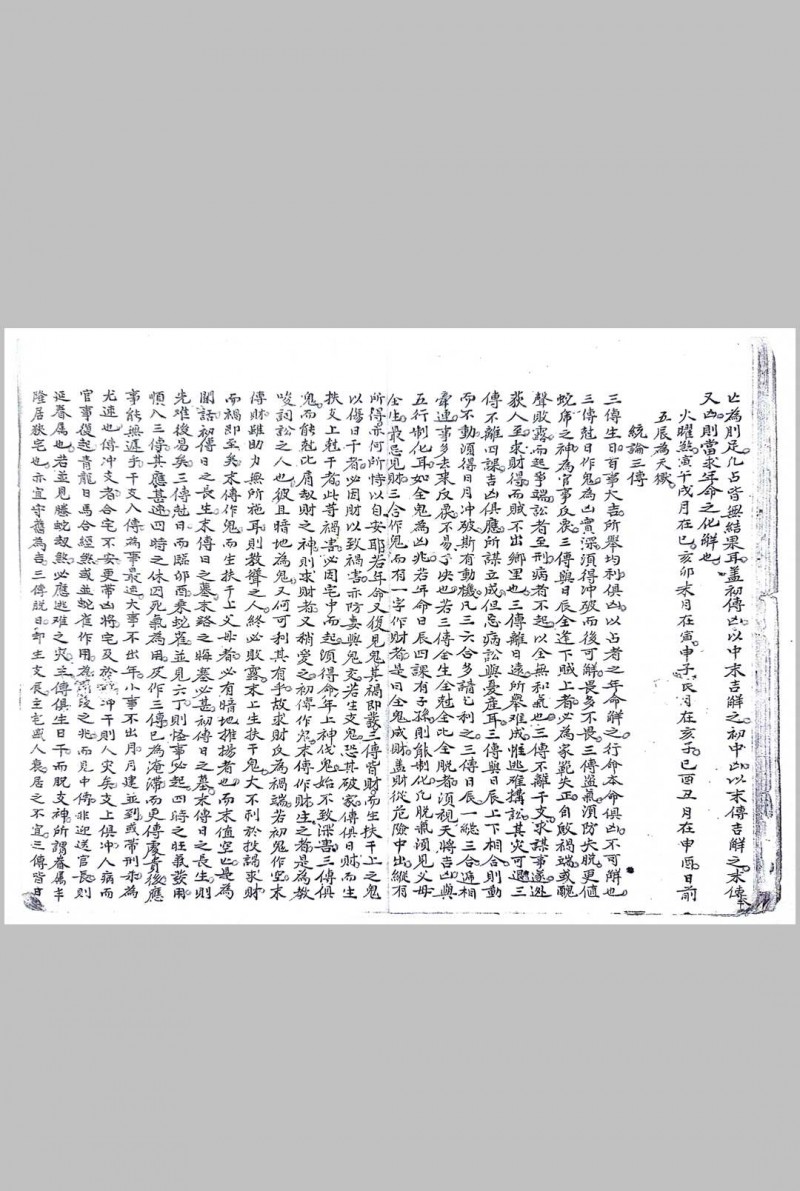 亡為刖足凡占皆無結果耳蓋初傳凶以中末吉解之初中凶以末傳吉解之末傳
又凶則當求年命之化解也
火曜煞寅午戌月在巳亥卯未月在寅申子辰月在亥子巳酉丑月在申酉日前
五辰為天獄
統論三傳
三傳生日百事大吉所舉均利俱凶以占者之年命解之行命本命俱凶不可解也
三傳尅日作鬼為凶實深須得冲破而後可解畏多不畏三傳盜氣須防失脫更值
蛇虎之神為官事反喪三傳與日辰全逢下賊上者必為家範失正自啟禍端或醜
聲敗露而起爭端訟者至刑病者不起以全無和氣也三傳不離干支求謀事遂逃
荻人至求財得而賊不出鄉里也三傳離日遠所舉難成惟逃確搆訟其灾可遇三
傳不離四課吉凶俱應所謀立成但忌病訟與憂產耳三傳與日辰上下相合則動
而不動須得日月冲破斯有動機凡三六合多諸吉利之三傳日辰一氣三合遞相
牽連事多去來反戾不易了決也若三傳全生全尅全比全脫者須視天將吉凶與
五行制化耳如全鬼為凶兆若年命日辰四課有子孫則能制化凡脫氣須見父母
全生最忌見財三合作鬼而有一字作財者是曰全鬼成財蓋財從危險中出縱有
所得亦何所恃以自安耶若年命又復見鬼其禍即發三傳皆財而生扶干上之鬼
以傷日干者必因財以致禍害亦防妻與鬼交若生支鬼恐其破家傳俱日財而生
扶支上尅干者此等禍害必因宅中而起須得命年上神伐鬼始不致深害三傳俱
鬼而能尅比肩劫財之神則求財者又稍愛之初傳作鬼末傳作財生之者是為教
唆詞訟之人也彼且暗地為鬼又何可利其有乎故求財反為禍端若初鬼作空末
傳財雖助力無所施耳則教聾之人終必敗露末上生扶干鬼大不利於投謁求財
而禍即至矣末傳作鬼而生扶干上父母者必有暗地推揚者也而末值空亡是為
閑話初傳日之長生末傳日之墓末路之晦塞必甚初傳日之墓末傳日之長生則
先难後易矣三傳尅日而臨卯酉乘蛇雀並見六丁則怪事必起四時之旺氣發用
順入三傳其應甚速四時之休囚死氣為用反作三傳已為淹滯而更傳慶青後應
事能無遲乎干支入傳為事最遠大事不出年小事不出月月建並到或帶刑禾為
尤速也傳冲支者合宅不安更帶凶將宅及於冲干則人灾矣支上俱冲人病而
官事復起青龍日馬合經無或並蛇雀作用為之兆而見中傳非迎送官長則
延眷属也若並見騰蛇刼煞必應逃难之灾三傳俱生日干而脫支神所謂眷属丰
隆居狹宅也亦宜守舊為吉三傳脫日却生支辰主宅盛人衰居之不宜三傳皆日